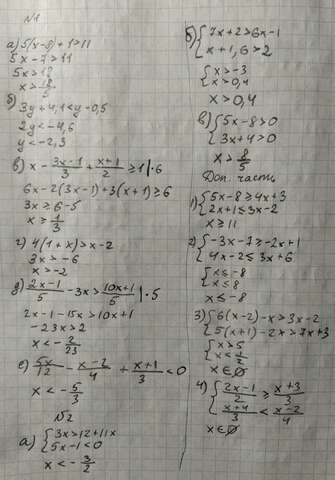 №1
а) 5(x-8)+1>11
5x-7>11
5x>18
x>18/5
б) 3y+4,1<y-0,5
2y<-4,6
y<-2,3
в) x - (3x-1)/3 + (x+1)/2 ≥ 1 |·6
6x-2(3x-1)+3(x+1)≥6
3x≥6-5
x≥1/3
г) 4(1+x)>x-2
3x>-6
x>-2
д) (2x-1)/5 - 3x > (10x+1)/5 |·5
2x-1-15x>10x+1
-23x>2
x<-2/23
е) 5x/12 - (x-2)/4 + (x+1)/3 < 0
x<-5/3
№2
а) { 3x>12+11x
5x-1<0
x<-3/2
б) { 7x+2>6x-1
x+1,6>2
{ x>-3
x>0,4
x>0,4
в) { 5x-8>0
3x+4>0
x>8/5
Доп. часть
1) { 5x-8≥4x+3
2x+1≤3x-2
x≥11
2) { -3x-7≥-2x+1
4x-2≤3x+6
{ x≤-8
x≤8
x≤-8
3) { 6(x-2)-x>3x-2
5(x+1)-2x>7x+3
{ x>5
x<1/2
x∈∅
4) { (2x-1)/2 ≥ (x+3)/3
(x+4)/3 < (x-2)/4
x∈∅